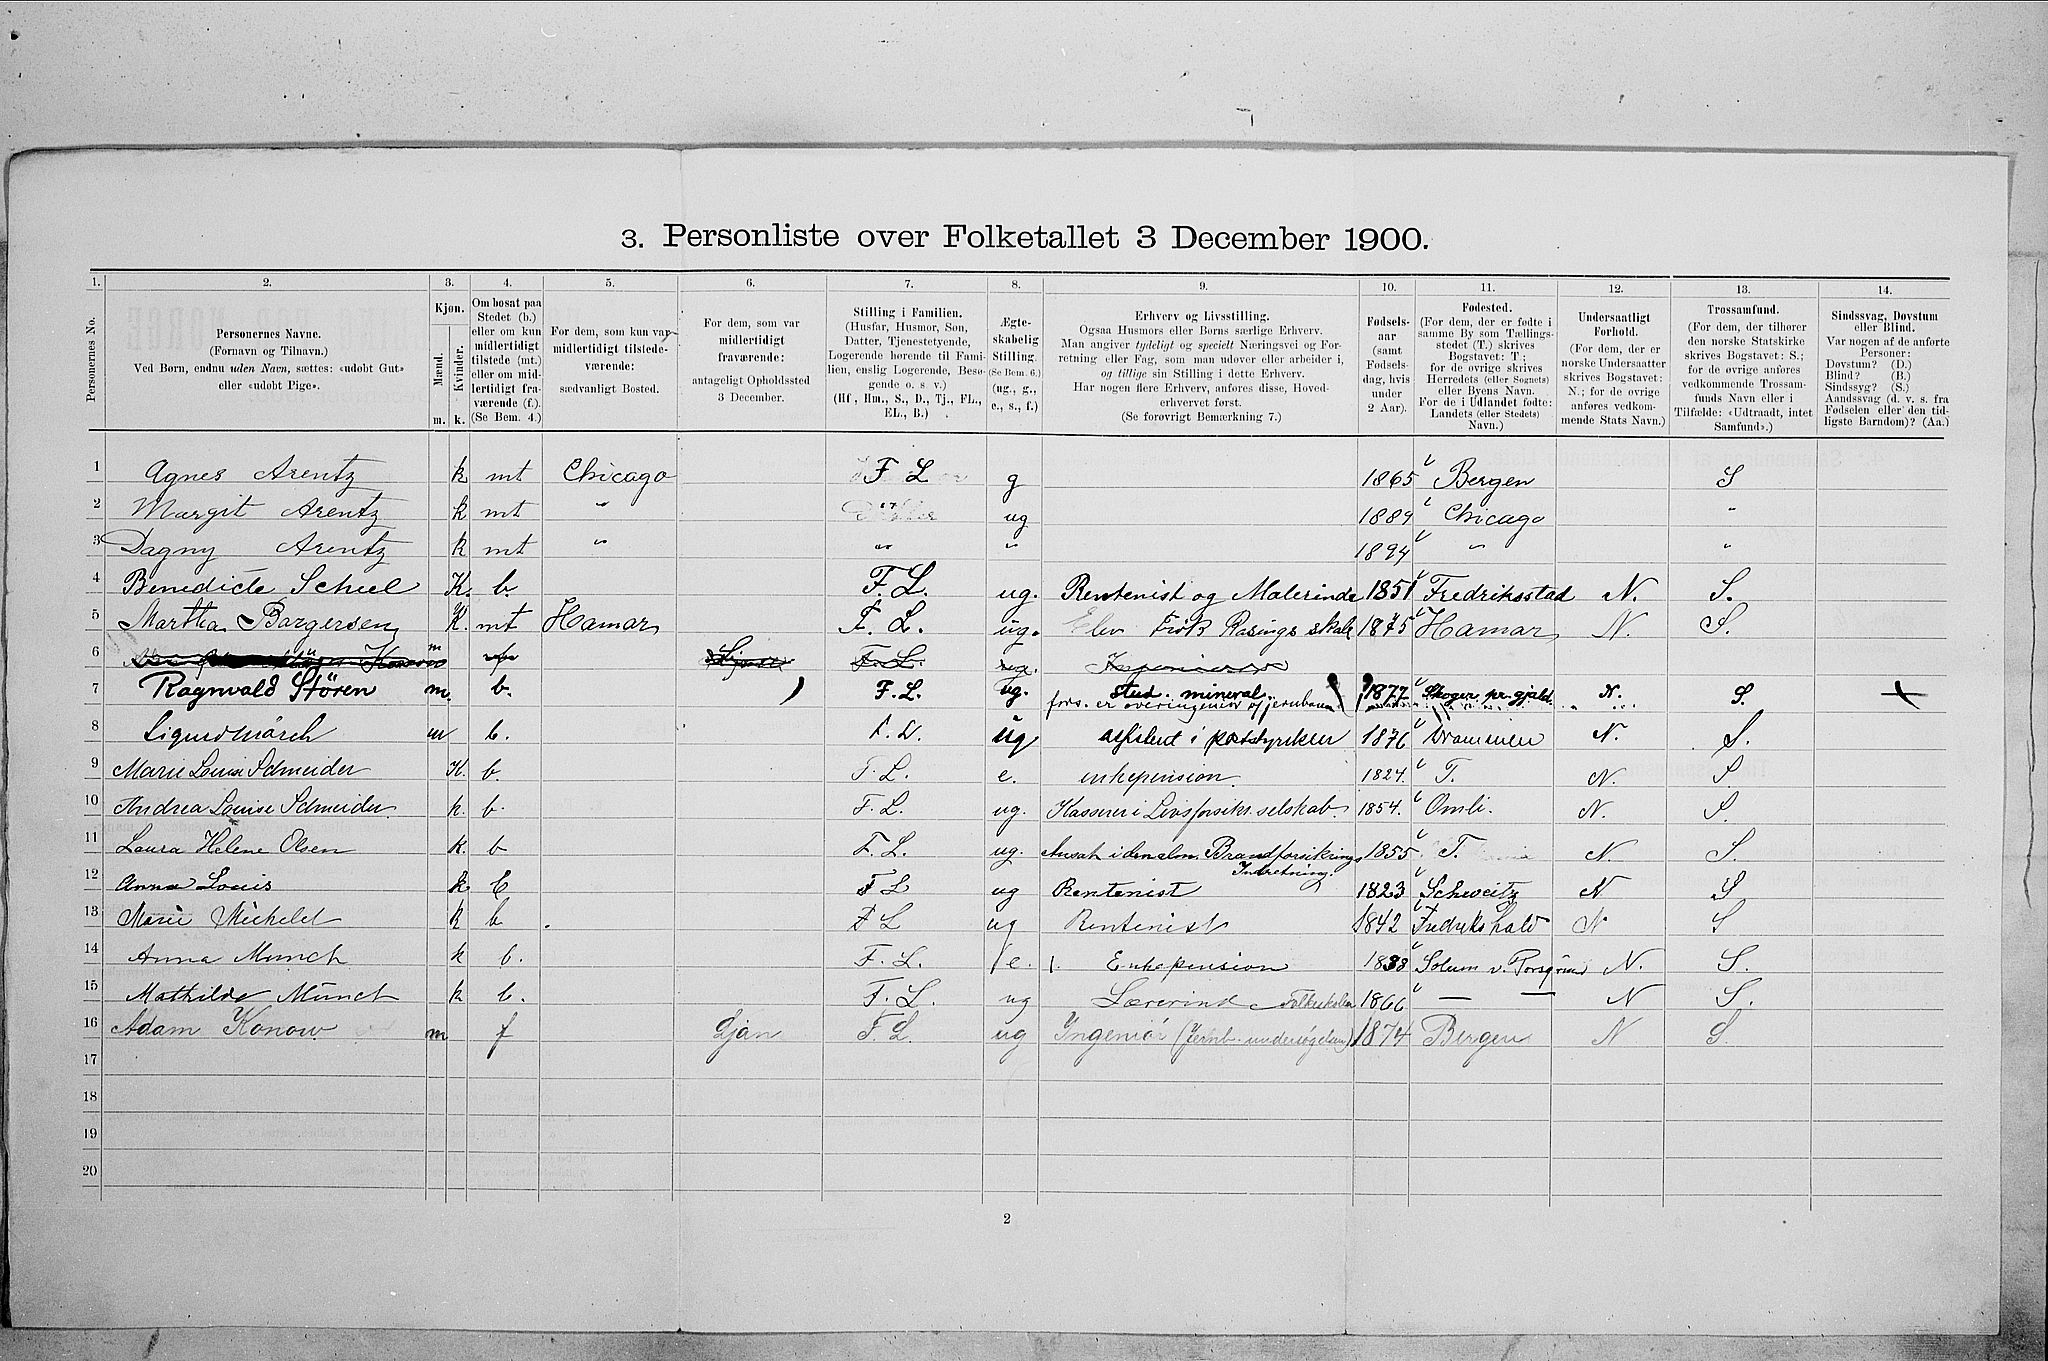 3. Personliste over Folketallet 3 December 1900.
1. 2. 3. 4. 5. 6. 7. 8. 9. 10. 11. 12. 13. 14.
Personernes No.
Personernes Navne.
(Fornavn og Tilnavn.)
Ved Børn, endnu uden Navn, sættes: «udøbt Gut»
eller «udøbt Pige».
Kjøn.
Mænd.
Kvinder.
m. k.
Om bosat paa
Stedet (b.)
eller om kun
midlertidigt
tilstede (mt.)
eller om mid-
lertidigt fra-
værende (f.).
(Se Bem. 4.)
For dem, som kun var
midlertidigt tilstede-
værende:
sædvanligt Bosted.
For dem, som var
midlertidigt
fraværende:
antageligt Opholdssted
3 December.
Stilling i Familien.
(Husfar, Husmor, Søn,
Datter, Tjenestetyende,
Logerende hørende til Fami-
lien, enslig Logerende, Besø-
gende o. s v.)
(Hf, Hm., S., D., Tj., FL.,
EL., B.)
Ægte-
skabelig
Stilling.
(Se Bem. 6.)
(ug., g.,
e., s., f.)
Erhverv og Livsstilling.
Ogsaa Husmors eller Børns særlige Erhverv.
Man angiver tydeligt og specielt Næringsvei og For-
retning eller Fag, som man udøver eller arbeider i,
og tillige sin Stilling i dette Erhverv.
Har nogen flere Erhverv, anføres disse, Hoved-
erhvervet først.
(Se forøvrigt Bemærkning 7.)
Fødsels-
aar
(samt
Fødsels-
dag, hvis
under
2 Aar).
Fødested.
(For dem, der er fødte i
samme By som Tællings-
stedet (T.) skrives
Bogstavet: T;
for de øvrige skrives
Herredets (eller Sognets)
eller Byens Navn.
For de i Udlandet fødte:
Landets (eller Stedets)
Navn.)
Undersaatligt
Forhold.
(For dem, der er
norske Undersaatter
skrives Bogstavet:
N.; for de øvrige
anføres vedkom-
mende Stats Navn.)
Trossamfund.
(For dem, der tilhører
den norske Statskirke
skrives Bogstavet: S.;
for de øvrige anføres
vedkommende Trossam-
funds Navn eller i
Tilfælde: «Udtraadt, intet
Samfund».)
Sindssvag, Døvstum
eller Blind.
Var nogen af de anførte
Personer:
Døvstum? (D.)
Blind? (B.)
Sindssyg? (S.)
Aandssvag (d. v. s. fra
Fødselen eller den tid-
ligste Barndom)? (Aa.)
1 Agnes Arentz k mt Chicago F L g 1865 Bergen S
2 Margit Arentz k mt " " ug 1889 Chicago "
3 Dagny Arentz k mt " " " 1894 " "
4 Benedicte Scheel K. b. F. L. ug. Rentenist og Malerinde 1851 Fredriksstad N. S.
5 Martha Borgersen K. mt Hamar F. L. ug. Elev Frøk Rasings skole 1875 Hamar N. S.
6 m F. L. ug. Ingeniør
7 Ragnvald Støren m. b. F. L. ug. stud. mineral. 1877 Skoger pr. gjeld. N. S.
fors. er overingeniør
8 Sigurd Mørch m b. F. L. ug assistent i poststyrelsen 1876 Drammen N. S.
9 Marie Louise Schneider K. b. F. L. e. enkepension 1824. T. N. S
10 Andrea Louise Schneider. k. b. F. L. ug. Kasserer i Livsforsikr. selskab. 1854. Omli. N. S.
11 Laura Helene Olsen k. b F. L. ug. Ansat i den alm. Brandforsikrings 1855 T. N. S.
Indretning.
12 Anna Louis k. b F L ug Rentenist 1823 Schweitz N S
13 Marie Michelet k b F L ug Rentenist 1842 Fredrikshald N S
14 Anna Munch k b. F. L. e. Enkepension 1838 Solum v. Porsgrund N. S.
15 Mathilde Munch k b. F. L. ug Lærerinde Folkeskolen 1866 — — N S.
16 Adam Konow. m f Gjøn F L. ug Ingeniør (Jernb. undersøgelsen) 1874 Bergen N S.
17
18
19
20
2